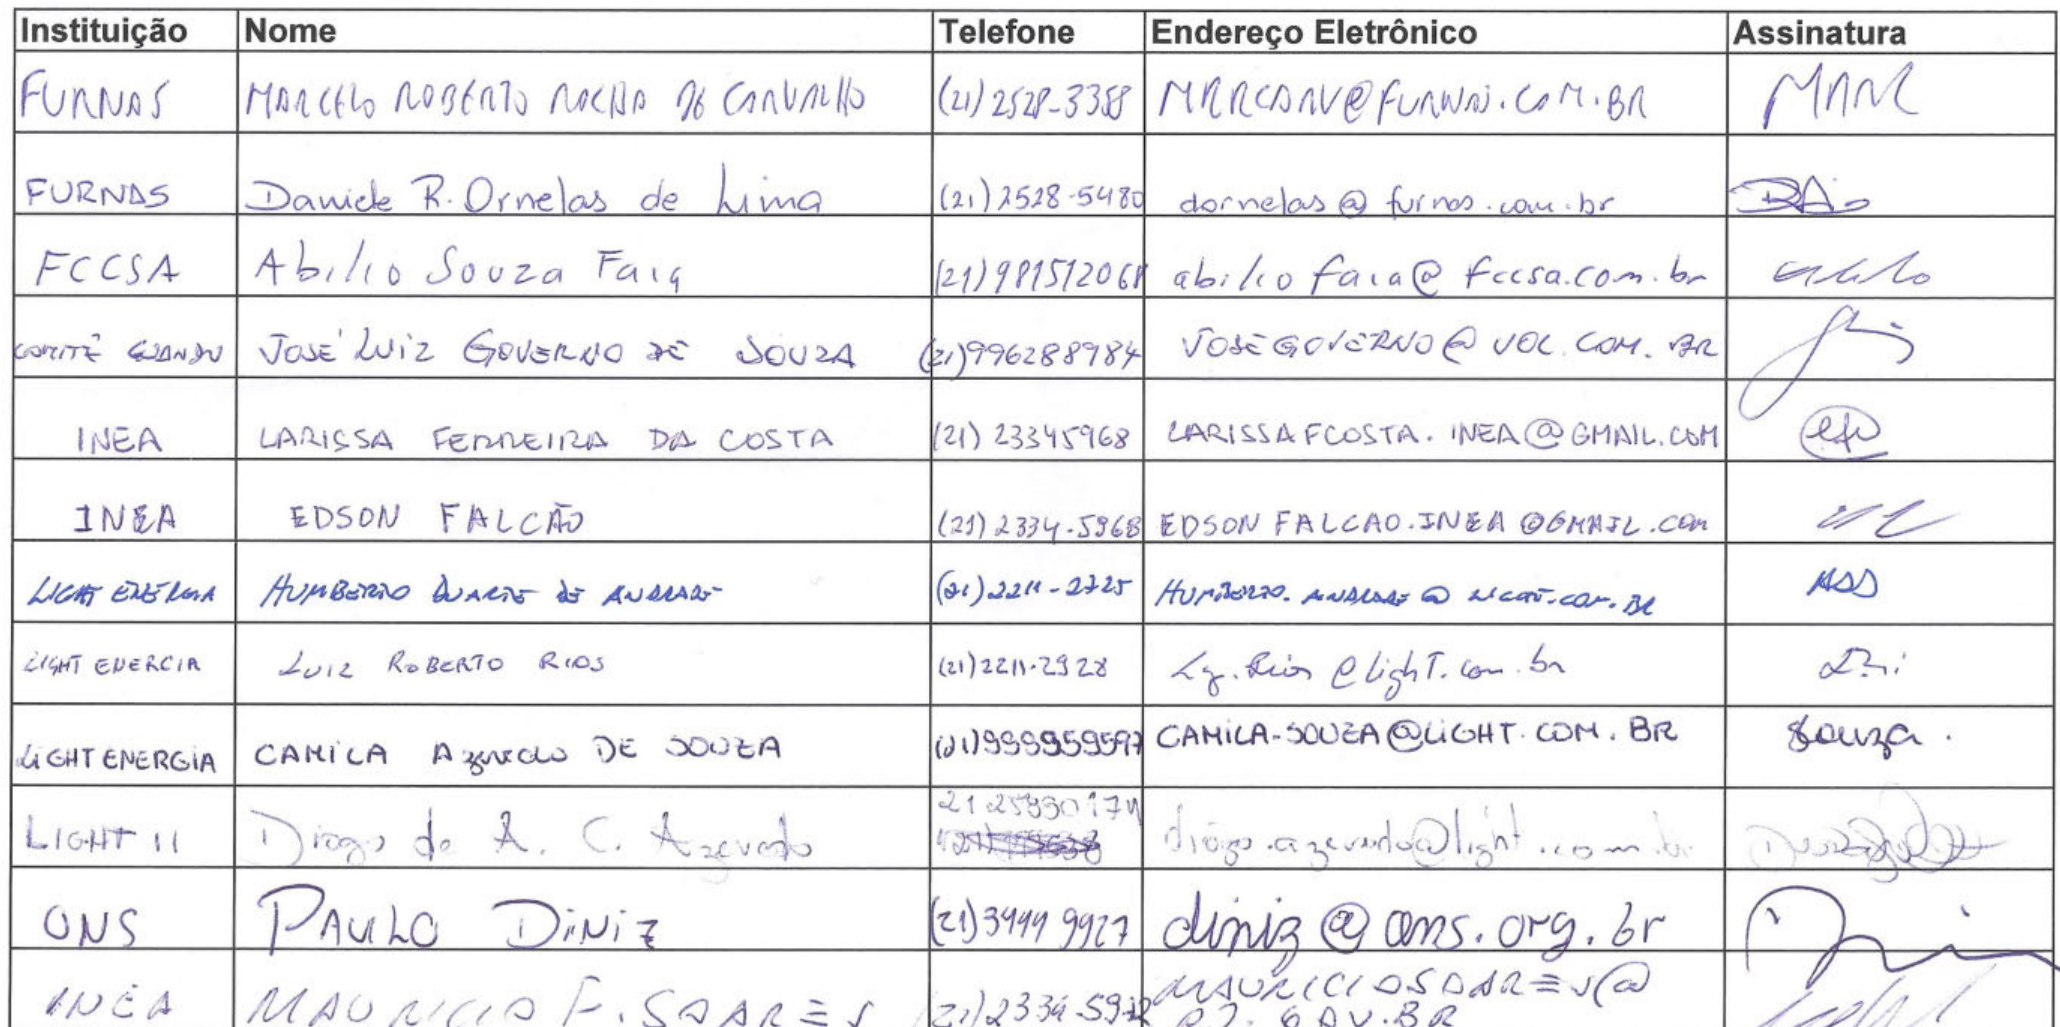 Instituição Nome Telefone Endereço Eletrônico Assinatura
FURNAS MARCELO ROBERTO ROCHA DE CARVALHO (21) 2528-3388 MRRCARV@FURNAS.COM.BR
FURNAS Daniele R. Ornelas de Lima (21) 2528-5480 dornelas@furnas.com.br
FCCSA Abilio Souza Faia (21) 981512068 abilio faia@fccsa.com.br
COMITÊ GUANDU JOSÉ LUIZ GOVERNO DE SOUZA (21)996288984 JOSEGOVERNO@UOL.COM.BR
INEA LARISSA FERREIRA DA COSTA (21) 23345968 LARISSAFCOSTA.INEA@GMAIL.COM
INEA EDSON FALCÃO (21) 2334-5968 EDSON FALCAO.INEA@GMAIL.com
LIGHT ENERGIA HUMBERTO DUARTE DE ANDRADE (21) 2211-2725 HUMBERTO.ANDRADE@LIGHT.COM.BR
LIGHT ENERGIA LUIZ ROBERTO RIOS (21) 2211-2928 @light.com.br
LIGHT ENERGIA CAMILA Azevedo DE SOUZA (21)999959597 CAMILA.SOUZA@LIGHT.COM.BR Souza.
LIGHT II Diogo de A. C. Azevedo diogo.azevedo@light.com.br
ONS PAULO DINIZ (21)3444 9927 diniz@ons.org.br
INEA MAURICIO F. SOARES (21)2334-5972 MAURICIOSOARES@
RJ.GOV.BR